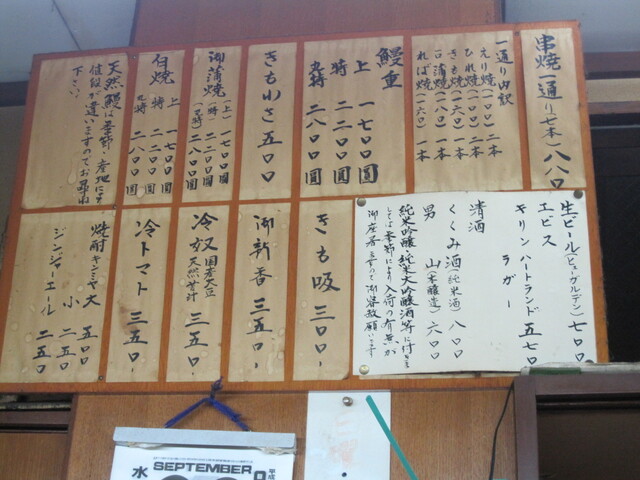 串焼一通り(七本)八八〇
一通り内訳
えり焼(一〇〇)二本
ひれ焼(一〇〇)一本
きも焼(一六〇)一本
一口蒲焼(一六〇)一本
れば焼(一六〇)一本
鰻重
上 一七〇〇圓
特 二二〇〇圓
丸特 二八〇〇圓
きもわさ 五〇〇
御蒲焼(上)一七〇〇圓
(特)二二〇〇圓
(丸特)二八〇〇圓
白焼 上 一七〇〇圓
特 二二〇〇圓
丸特 二八〇〇圓
天然鰻は季節・産地により
値段が違いますのでお尋ね
下さい
生ビール(ヒューガルデン)七〇〇
エビス
キリンハートランド 五七〇
ラガー
清酒
くくみ酒(純米酒)八〇〇
男山(本醸造)六〇〇
純米吟醸・純米大吟醸酒等に付き
ましては季節により入荷の有無が
御座居ますので御容赦願います
きも吸 三〇〇-
御新香 三五〇-
冷奴 国産大豆
天然苦汁 三五〇-
冷トマト 三五〇-
焼酎 キンミヤ 大 五〇〇
小 二五〇
ジンジャーエール 二五〇
水
SEPTEMBER
9
平成